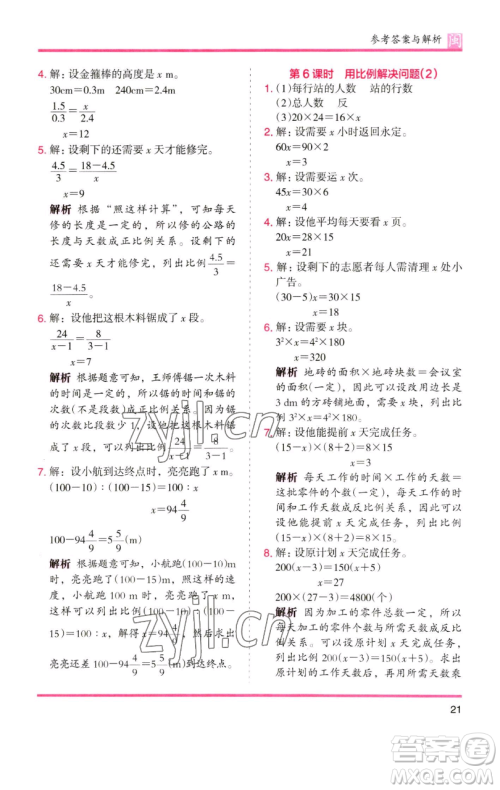 参考答案与解析
4. 解：设金箍棒的高度是 x m。
30cm=0.3m　240cm=2.4m
1.5/0.3=x/2.4
x=12
5. 解：设剩下的还需要 x 天才能修完。
4.5/3=(18-4.5)/x
x=9
解析 根据“照这样计算”，可知每天
修的长度是一定的，所以修的公路的
长度与天数成正比例关系。设剩下的
还需要 x 天才能修完，列出比例4.5/3=
(18-4.5)/x。
6. 解：设他把这根木料锯成了 x 段。
24/(x-1)=8/(3-1)
x=7
解析 根据题意可知，王师傅锯一次木
料的时间一定，所以锯的时间和锯的
次数(不是段数)成正比例关系，锯的
次数比段数少 1。设他把这根木料锯
成了 x 段，列出比例24/(x-1)=8/(3-1)。
7. 解：设小航到达终点时，亮亮跑了 x m。
(100-10)：(100-15)=100：x
x=94 4/9
100-94 4/9=5 5/9(m)
解析 根据题意，小航跑(100-10)m
时，亮亮跑了(100-15)m，在速度一定
时，小航跑 100 m，亮亮跑 x m，根据题
意可以列出比例(100-10)：(100-15)
=100：x，解得 x=94 4/9，然后求出
亮亮还差100-94 4/9=5 5/9(m)到达终点。
第 6 课时　用比例解决问题(2)
1. (1)每行站的人数　站的行数
(2)总人数　反
(3)20×24=16×x
2. 解：设需要 x 小时返回永定。
60x=90×2
x=3
3. 解：设需要运 x 次。
45x=30×6
x=4
4. 解：设他平均每天看 x 页。
20x=28×15
x=21
5. 解：设剩下的志愿者每人需清理 x 张小
广告。
(30-5)x=30×15
x=18
6. 解：设需要 x 块。
3²×x=4²×180
x=320
解析 地砖的面积×地砖块数=会议室
的面积(一定)，所以地砖的面积与地
砖的块数成反比例关系。设改成边长是
3 dm 的方砖铺地面，需要 x 块，列出比
例 3²×x=4²×180。
7. 解：设他能提前 x 天完成任务。
(15-x)×(8+2)=8×15
x=3
解析 每天工作的时间×工作的天数=
这批零件的个数(一定)，所以每天工作
的时间和工作天数成反比例关系。设
他能提前 x 天完成任务，列出比例
(15-x)×(8+2)=8×15。
8. 解：设原计划 x 天完成任务。
200(x-3)=(200-22)x
x=27
200×(27-3)=4800(个)
解析 因为加工的零件总个数一定，所
以每天加工的个数与所需天数成反比
例关系。可以设原计划 x 天完成任务，
列出比例 200(x-3)=(200-22)x。求出
原计划完成任务所需天数，用所需天数乘
21
zyjl.cn
zyjl.cn
答案圈
MXQE.COM